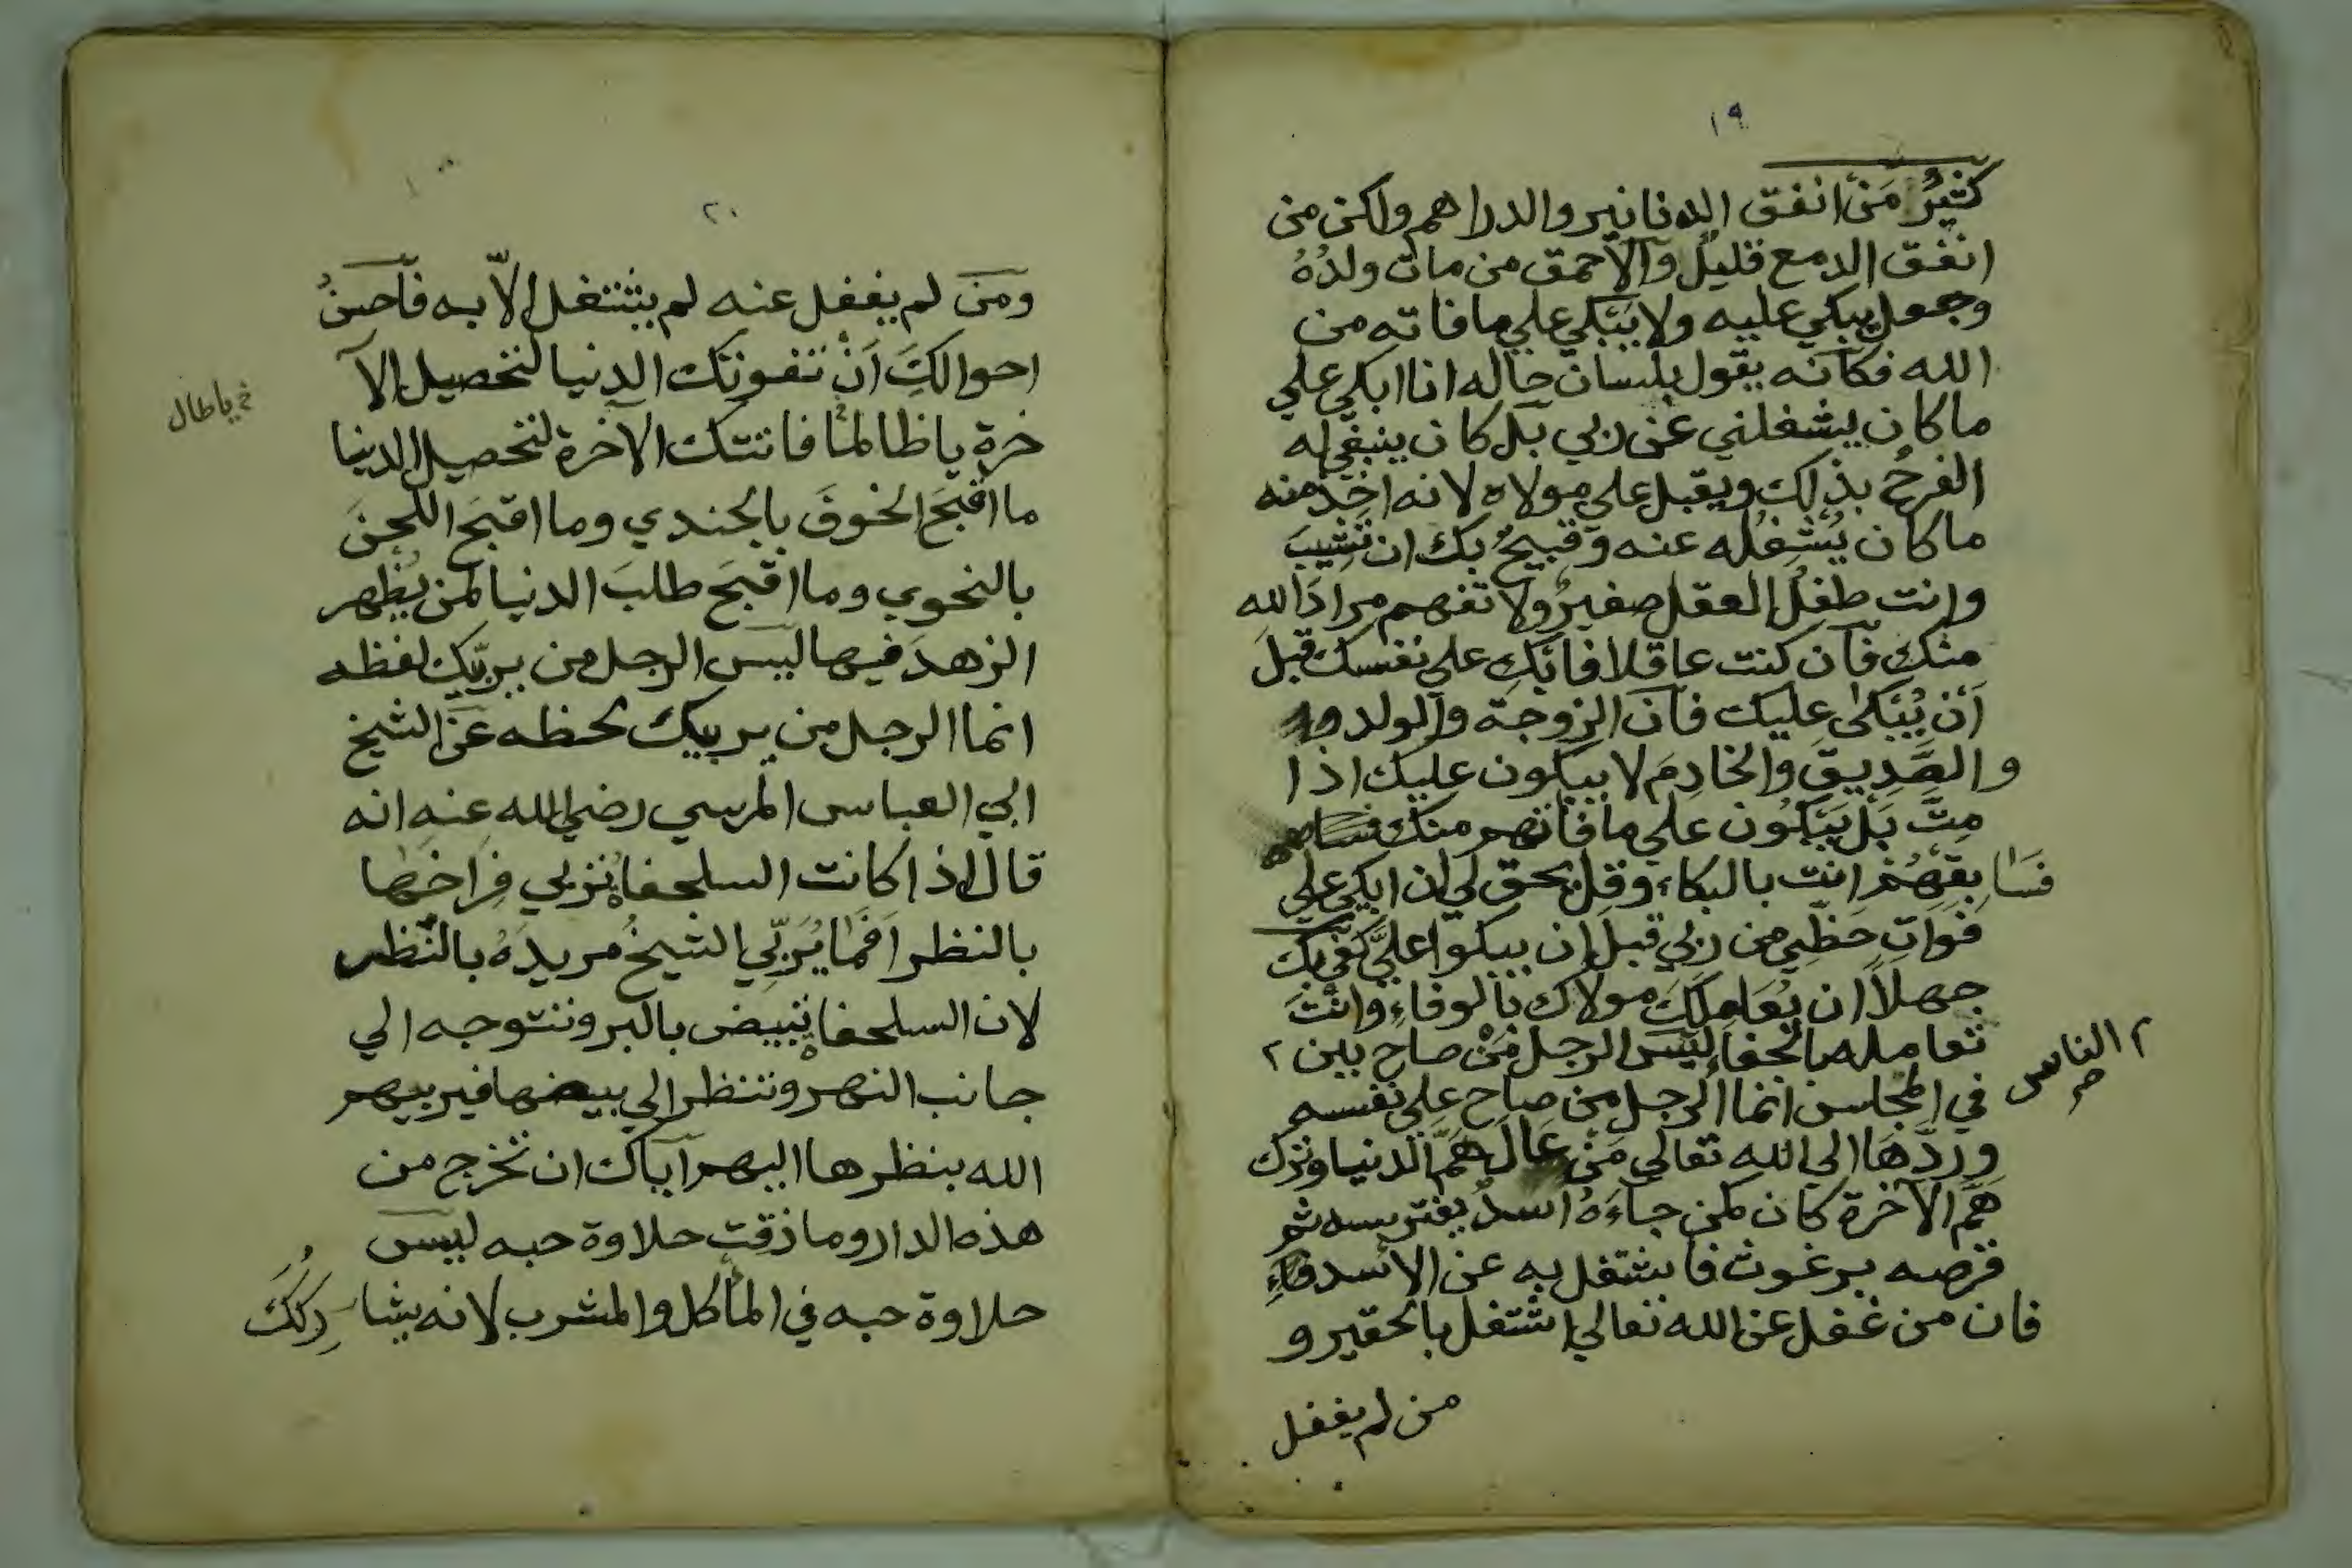 ١٩
كثيرٌ مَن انفق الدنانير والدراهم ولكن من
انفق الدمع قليلٌ والاحمق من مات ولدُهُ
وجعل يبكي عليه ولا يَبْكي علي ما فاته من
الله فكانه يقول بلسان حاله انا ابكي علي
ما كان يشغلني عن ربي بل كان ينبغي له
الفرحُ بذلك ويقبل علي مولاه لانه اخذ منه
ما كان يُشغِلُه عنه وقبيحٌ بك ان تشيبَ
وانت طفلُ العقل صغيرٌ ولا تفهم مرادَ الله
منك فان كنت عاقلا فابْكِ علي نفسك قبل
اَنْ يُبْكىٰ عليك فان الزوجة والولد
و الصَّديق والخادِمَ لا يبكون عليك اذا
مِتَّ بَلْ يَبْكُون علي ما فاتهم منك
فسَابِقهُمْ انت بالبكاء وقل يحق لي ان ابكي علي
فوات حظّي من ربي قبل ان يبكوا عليَّ كفي بك
جهلاً ان يُعَامِلَكَ مولاك بالوفاءِ وانْتَ
تعامله بالجفاءِ ليْسَ الرجل مَنْ صاح بين ٢
٢ الناس صح
في المجالس انما الرجل من صاح علي نفسه
وردَّهَا الي الله تعالي مَنْ عَالَ هَمَّ الدنيا وترك
هَمَّ الآخرة كان كمن جاءَهُ اسدٌ يفترسه ثم
قرصه برغوث فاشتغل به عن الاسد
فان من غفل عن الله تعالي اشتغل بالحقير و
من لم يغفل
٢٠
ومَنَ لم يغفل عنه لم يشتغل الاّ به فاحسنُ
احوالكَ اَنْ تفوتك الدنيا لتحصيل الآ
خرة يا ظالما فاتتك الآخرة لتحصيل الدنيا
خ يا طال
ما اقبَحَ الخوفَ بالجندي وما اقبَحَ اللحنَ
بالنحوي وما اقبَحَ طلبَ الدنيا لمن يُظهر
الزهدَ فيها ليس الرجل من يربّيك لفظه
انما الرجل من يربيك لحظه عن الشيخ
ابي العباس المرسي رضي الله عنه انه
قال اذا كانت السلحفاة تربي فِراخها
بالنظر اَفَمَا يُرَبِّي الشيخُ مريدَهُ بالنّظر
لان السلحفاة تبيض بالبر وتتوجه الي
جانب النهر وتنظر الي بيضها فيربيهم
الله بنظرها اليهم اياك ان تخرج من
هذه الدار وما ذقت حلاوة حبه ليس
حلاوة حبه في المأكل والمشرب لانه يشا رِكُكَ